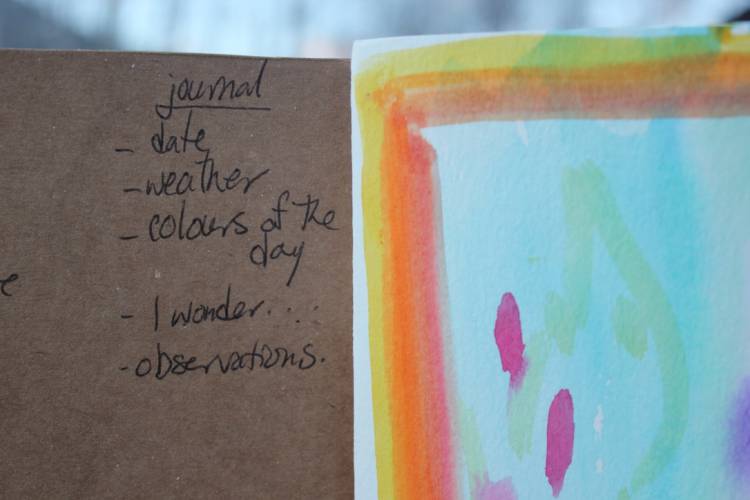 journal
- date
- weather
- colours of the
day
- I wonder....
- observations.